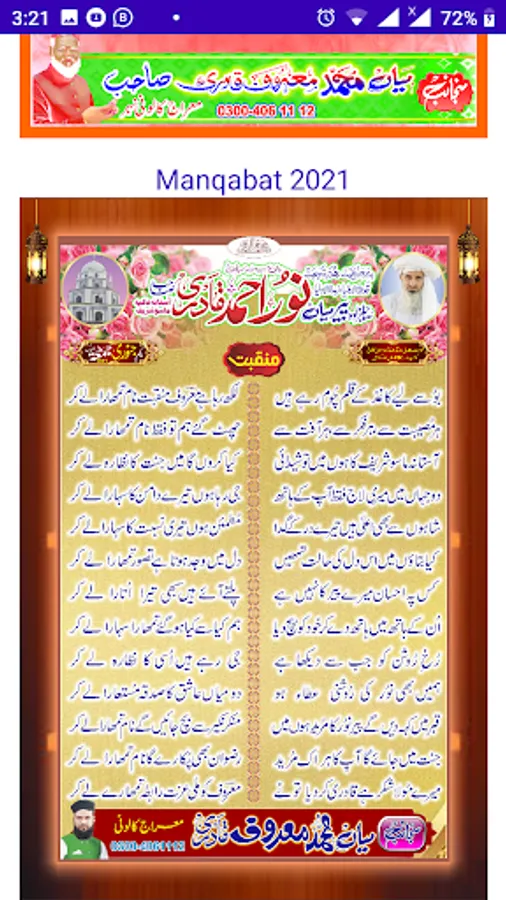 3:21
72%
منجانب
میاں محمد معروف قادری صاحب
معراج کالونی
0300-406 11 12
Manqabat 2021
پیر میاں نور احمد قادری
جنوری
منقبت
بوسے لیے کاغذ کے قلم چوم رہے ہیں لکھ رہا ہے معروف منقبت نام تمھارا لے کر
ہر مصیبت سے ہر فکر سے ہر آفت سے چھٹ گئے ہم تو فقط نام تمھارا لے کر
آستانہ ماسو شریف کا ہوں میں تو شیدائی کیا کروں گا میں جنت کا نظارہ لے کر
دو جہاں میں میری لاج فقط آپ کے ہاتھ جی رہا ہوں تیرے دامن کا سہارا لے کر
شاہوں سے بھی اعلیٰ ہیں تیرے در کے گدا مطمئن ہوں تیری نسبت کا سہارا لے کر
کیا بتاؤں میں اس دل کی حالت تمھیں دل میں وجد ہوتا ہے تصور تمھارا لے کر
کس پر احسان میرے پیر کا نہیں ہے پلٹے آئے ہیں سبھی تیرا اُتارا لے کر
اُن کے ہاتھ میں ہاتھ دے کے خود کو بیچ دیا ہم کیا سے کیا ہو گئے تمھارا سہارا لے کر
رُخِ روشن کو جب سے دیکھا ہے جی رہے ہیں اُسی کا نظارہ لے کر
ہمیں بھی نور کی روشنی عطاء ہو دو میاں عاشق کا صدقہ مستعار لے کر
قبر میں کہہ دیں گے پیر نور کا مرید ہوں میں منکر نکیر سے بچ جائیں گے نام تمھارا لے کر
جنت میں جائے گا آپ کا ہر اک مرید رضوان بھی پکارے گا نام تمھارا لے کر
میرے مولا شکر ہے قادری کر دیا تو نے معروف کو ملی عزت رابطہ تمھارے لے کر
منجانب
میاں محمد معروف قادری
معراج کالونی
0300-4061112